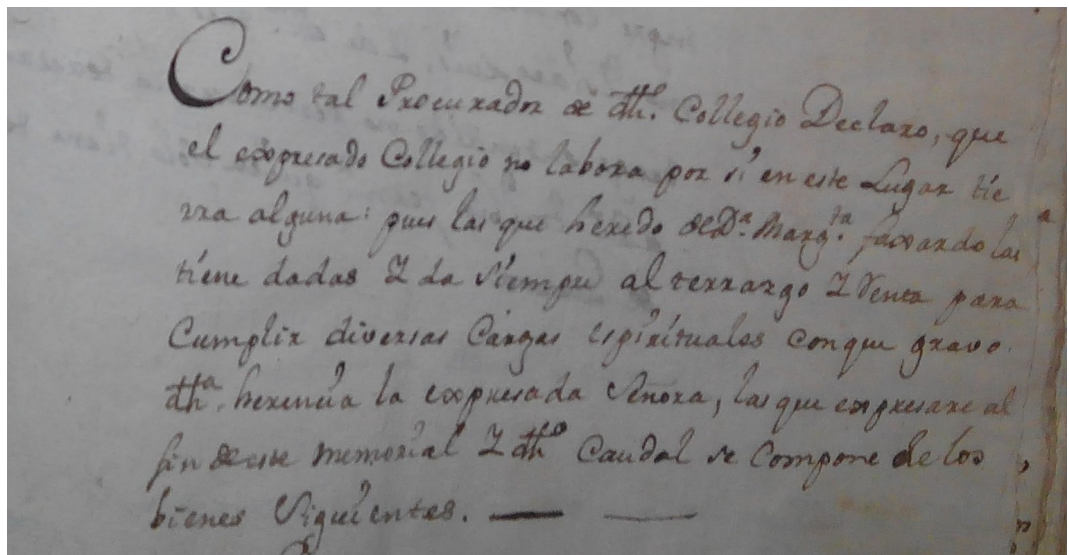 Como tal Procurador de dho. Collegio Declaro, que
el expresado Collegio no labora por sí en este Lugar tie
rra alguna: pues las que heredo de Da. Margta. faxardo las
tiene dadas Y da siempre al terrazgo Y Venta para
Cumplir diversas Cargas espirituales conque gravo
dha. herencia la expresada Señora, las que expresare al
fin de este memorial Y dho Caudal se Compone de los
bienes Siguientes.